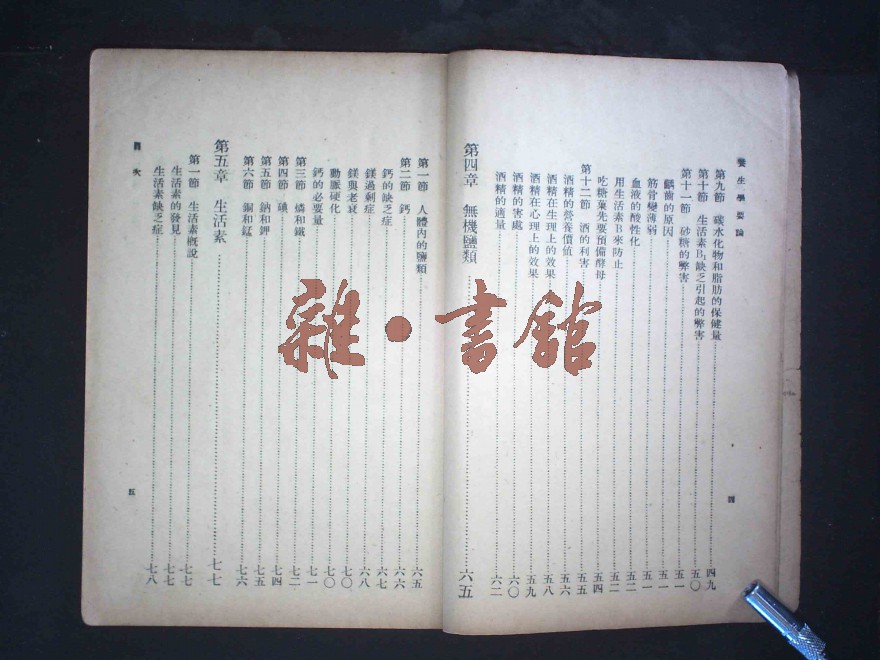 養生學要論
第九節 碳水化物和脂肪的保健量 四九
第十節 生活素B₁缺乏引起的弊害 五〇
第十一節 砂糖的弊害 五一
齲齒的原因 五一
筋骨變薄弱 五一
血液的酸性化 五二
用生活素B來防止 五二
吃糖菓先要預備酵母 五四
第十二節 酒的利害 五五
酒精的營養價值 五六
酒精在生理上的效果 五八
酒精在心理上的效果 五九
酒精的害處 六〇
酒精的適量 六二
第四章 無機鹽類 六五
四
第一節 人體內的鹽類 六五
第二節 鈣 六六
鈣的缺乏症 六七
鎂過剩症 六八
鎂與老衰 七〇
動脈硬化 七〇
鈣的必要量 七一
第三節 燐和鐵 七二
第四節 碘 七四
第五節 鈉和鉀 七五
第六節 銅和錳 七六
第五章 生活素 七七
第一節 生活素概說 七七
生活素的發見 七七
生活素缺乏症 七八
目次
五
雜·書館